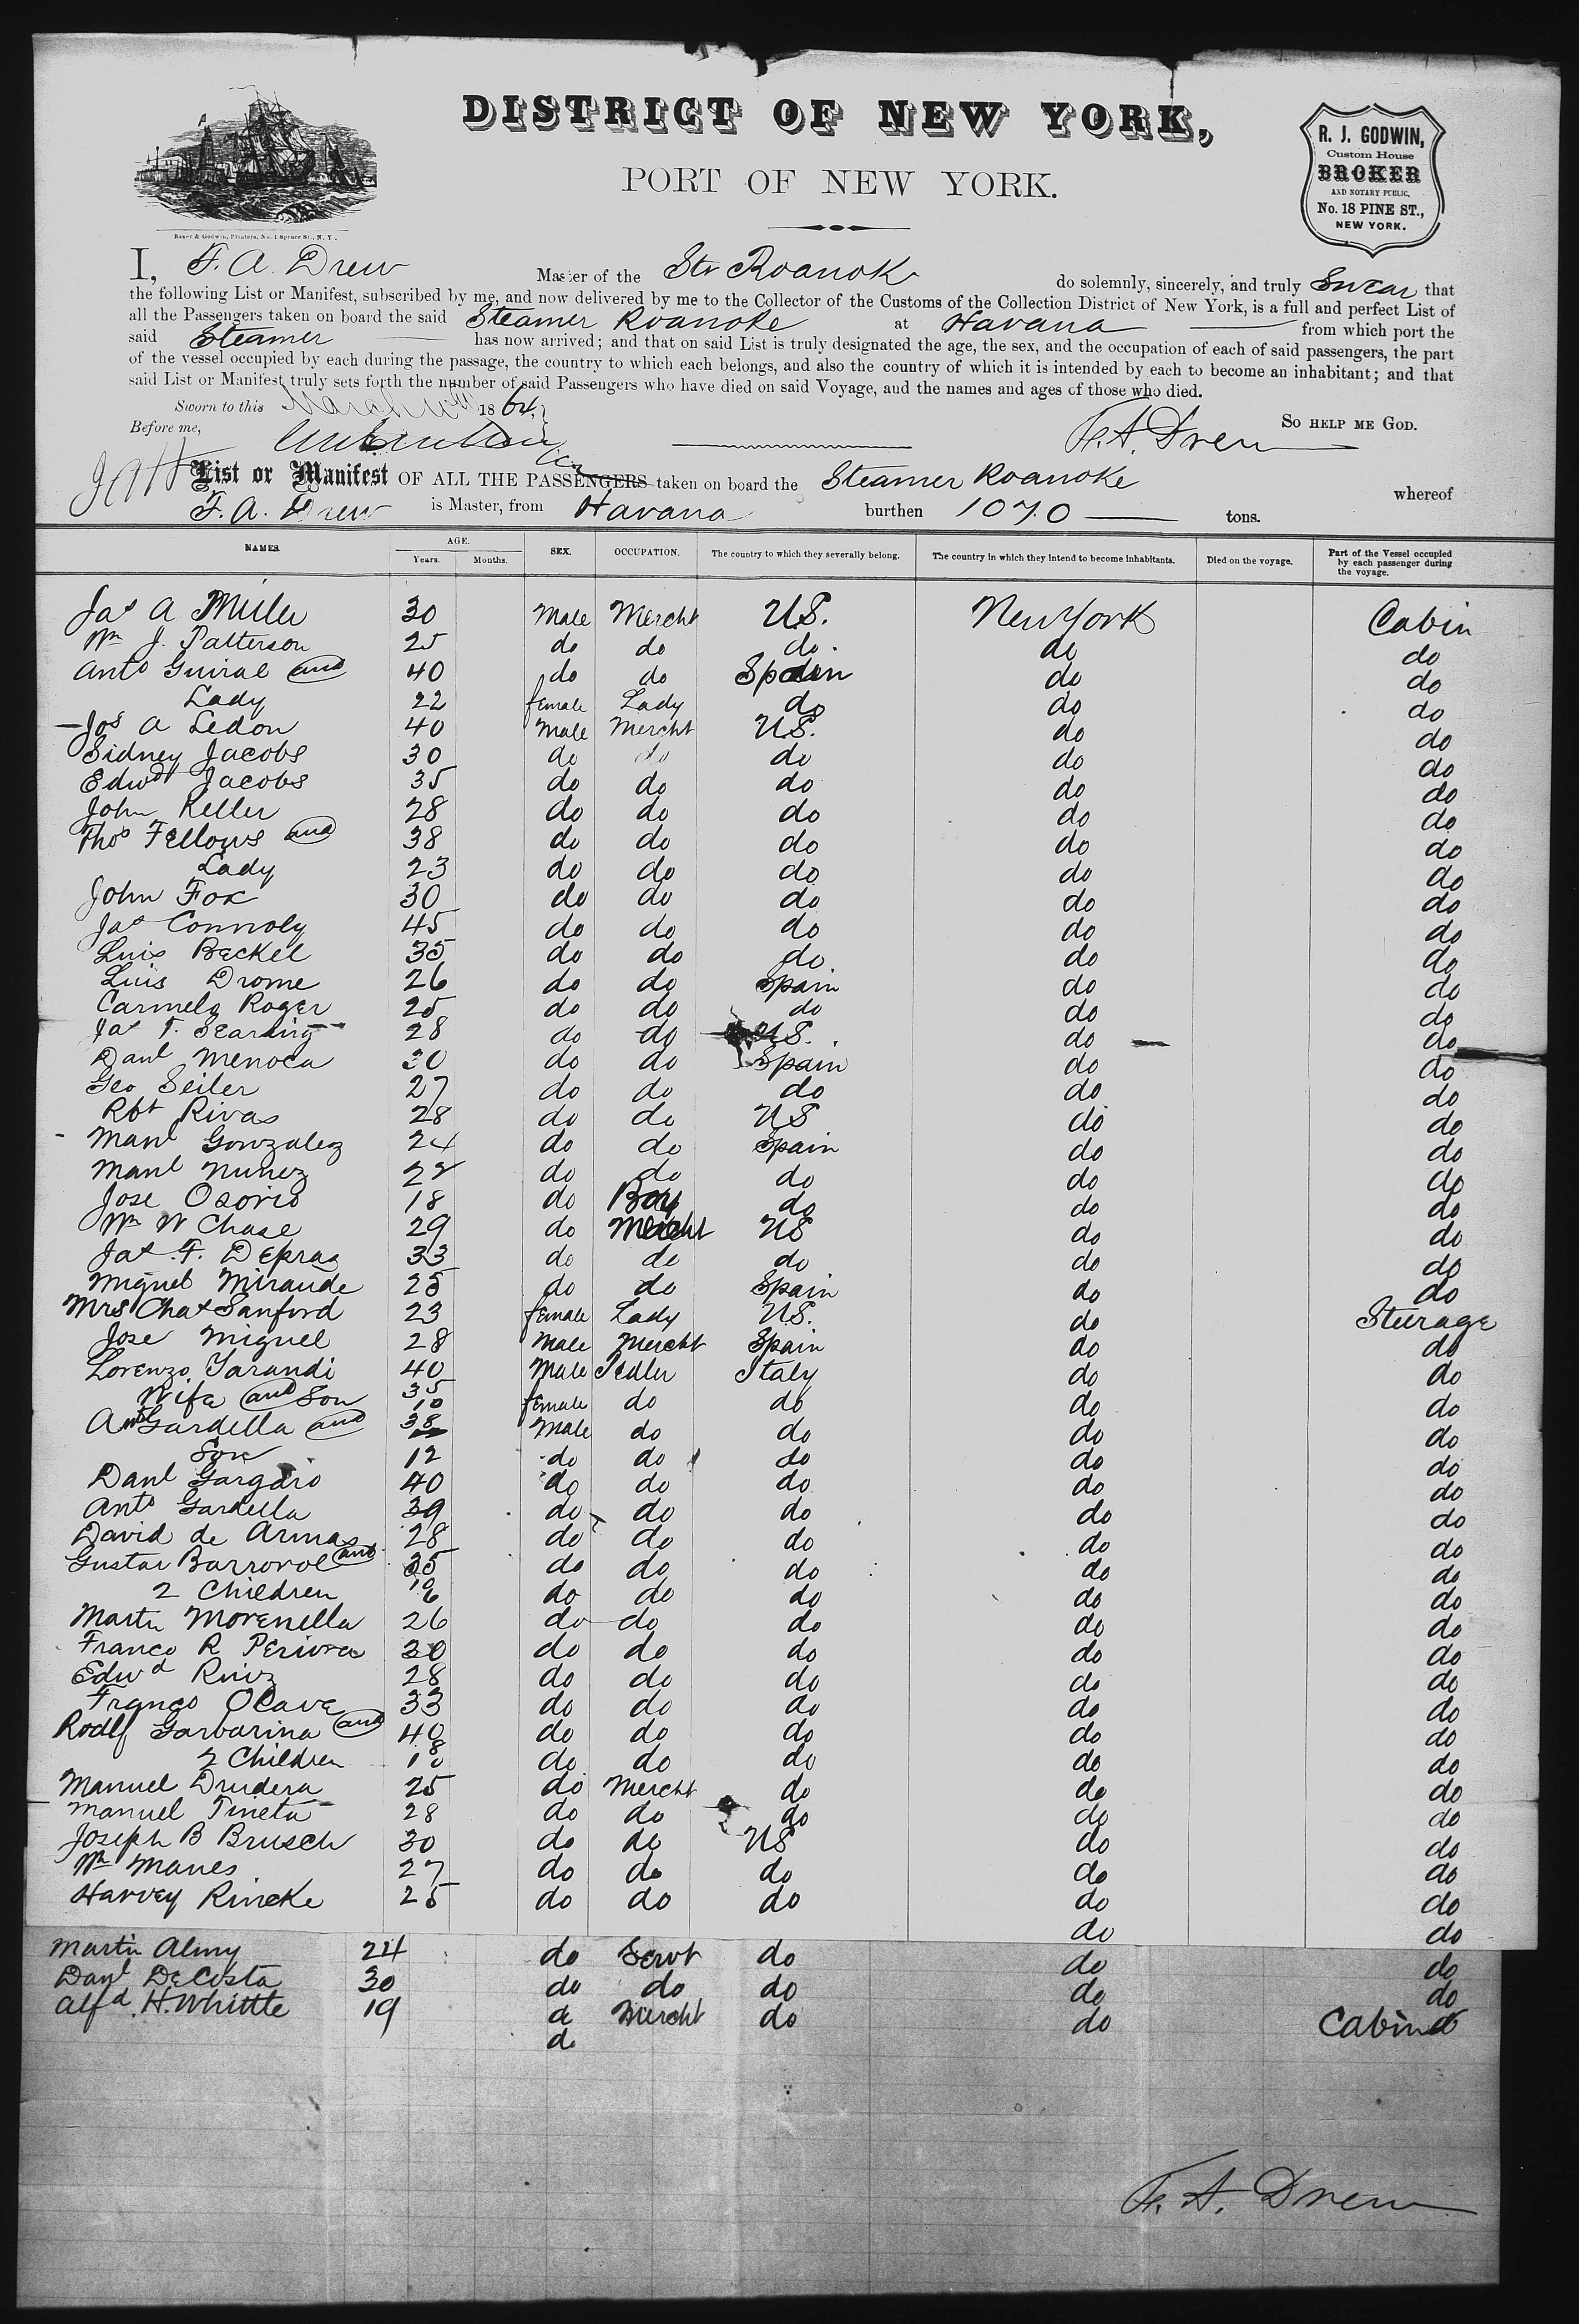 DISTRICT OF NEW YORK,
PORT OF NEW YORK.
Baker & Godwin, Printers, No. 1 Spruce St., N. Y.
R. J. GODWIN,
Custom House
BROKER
AND NOTARY PUBLIC,
No. 18 PINE ST.,
NEW YORK.
I, F. A. Drew Master of the Str Roanoke do solemnly, sincerely, and truly Swear that
the following List or Manifest, subscribed by me, and now delivered by me to the Collector of the Customs of the Collection District of New York, is a full and perfect List of
all the Passengers taken on board the said Steamer Roanoke at Havana from which port the
said Steamer has now arrived; and that on said List is truly designated the age, the sex, and the occupation of each of said passengers, the part
of the vessel occupied by each during the passage, the country to which each belongs, and also the country of which it is intended by each to become an inhabitant; and that
said List or Manifest truly sets forth the number of said Passengers who have died on said Voyage, and the names and ages of those who died.
Sworn to this March 1864,
Before me, F. A. Drew SO HELP ME GOD.
List or Manifest OF ALL THE PASSENGERS taken on board the Steamer Roanoke whereof
F. A. Drew is Master, from Havana burthen 1070 tons.
NAMES. AGE. Years. Months. SEX. OCCUPATION. The country to which they severally belong. The country in which they intend to become inhabitants. Died on the voyage. Part of the Vessel occupied by each passenger during the voyage.
Jas A Miller 30 Male Mercht U.S. New York Cabin
Wm J. Patterson 25 do do do do do
Anto Guiral and 40 do do Spain do do
Lady 22 female Lady do do do
Jos A Ledon 40 Male Mercht U.S. do do
Sidney Jacobs 30 do do do do do
Edwd Jacobs 35 do do do do do
John Keller 28 do do do do do
Thos Fellows and 38 do do do do do
Lady 23 do do do do do
John Fox 30 do do do do do
Jas Connoly 45 do do do do do
Luis Beckel 35 do do do do do
Luis Drome 26 do do Spain do do
Carmelo Roger 25 do do do do do
Jas T. Searing 28 do do U.S. do do
Danl Menoca 30 do do Spain do do
Geo Seiler 27 do do do do do
Rbt Rivas 28 do do US do do
Manl Gonzalez 24 do do Spain do do
Manl Nunez 22 do do do do do
Jose Osorio 18 do Boy do do do
Wm W Chase 29 do Mercht US do do
Jas F. Depraz 33 do do do do do
Miguel Miraude 25 do do Spain do do
Mrs Chas Sanford 23 female Lady U.S. do Steerage
Jose Miguel 28 Male Mercht Spain do do
Lorenzo Yarandi 40 Male Pedler Italy do do
Wife and Son 35 10 female do do do do
Anto Gardella and 38 Male do do do do
Son 12 do do do do do
Danl Gargaro 40 do do do do do
Anto Gardella 39 do do do do do
David de Armas 28 do do do do do
Gustav Barrovol and 35 do do do do do
2 Children 10 6 do do do do do
Martin Morenella 26 do do do do do
Franco R Periora 30 do do do do do
Edwd Ruiz 28 do do do do do
Franco Olave 33 do do do do do
Rodlf Garbarina and 40 do do do do do
2 Children 10 8 do do do do do
Manuel Drudera 25 do Mercht do do do
Manuel Tineta 28 do do do do do
Joseph B Brusch 30 do do US do do
Wm Manes 27 do do do do do
Harvey Rincke 25 do do do do do
do do
Martin Almy 24 do Servt do do do
Danl DeCosta 30 do do do do do
Alfd H. Whittle 19 do Mercht do do Cabin
do
F. A. Drew